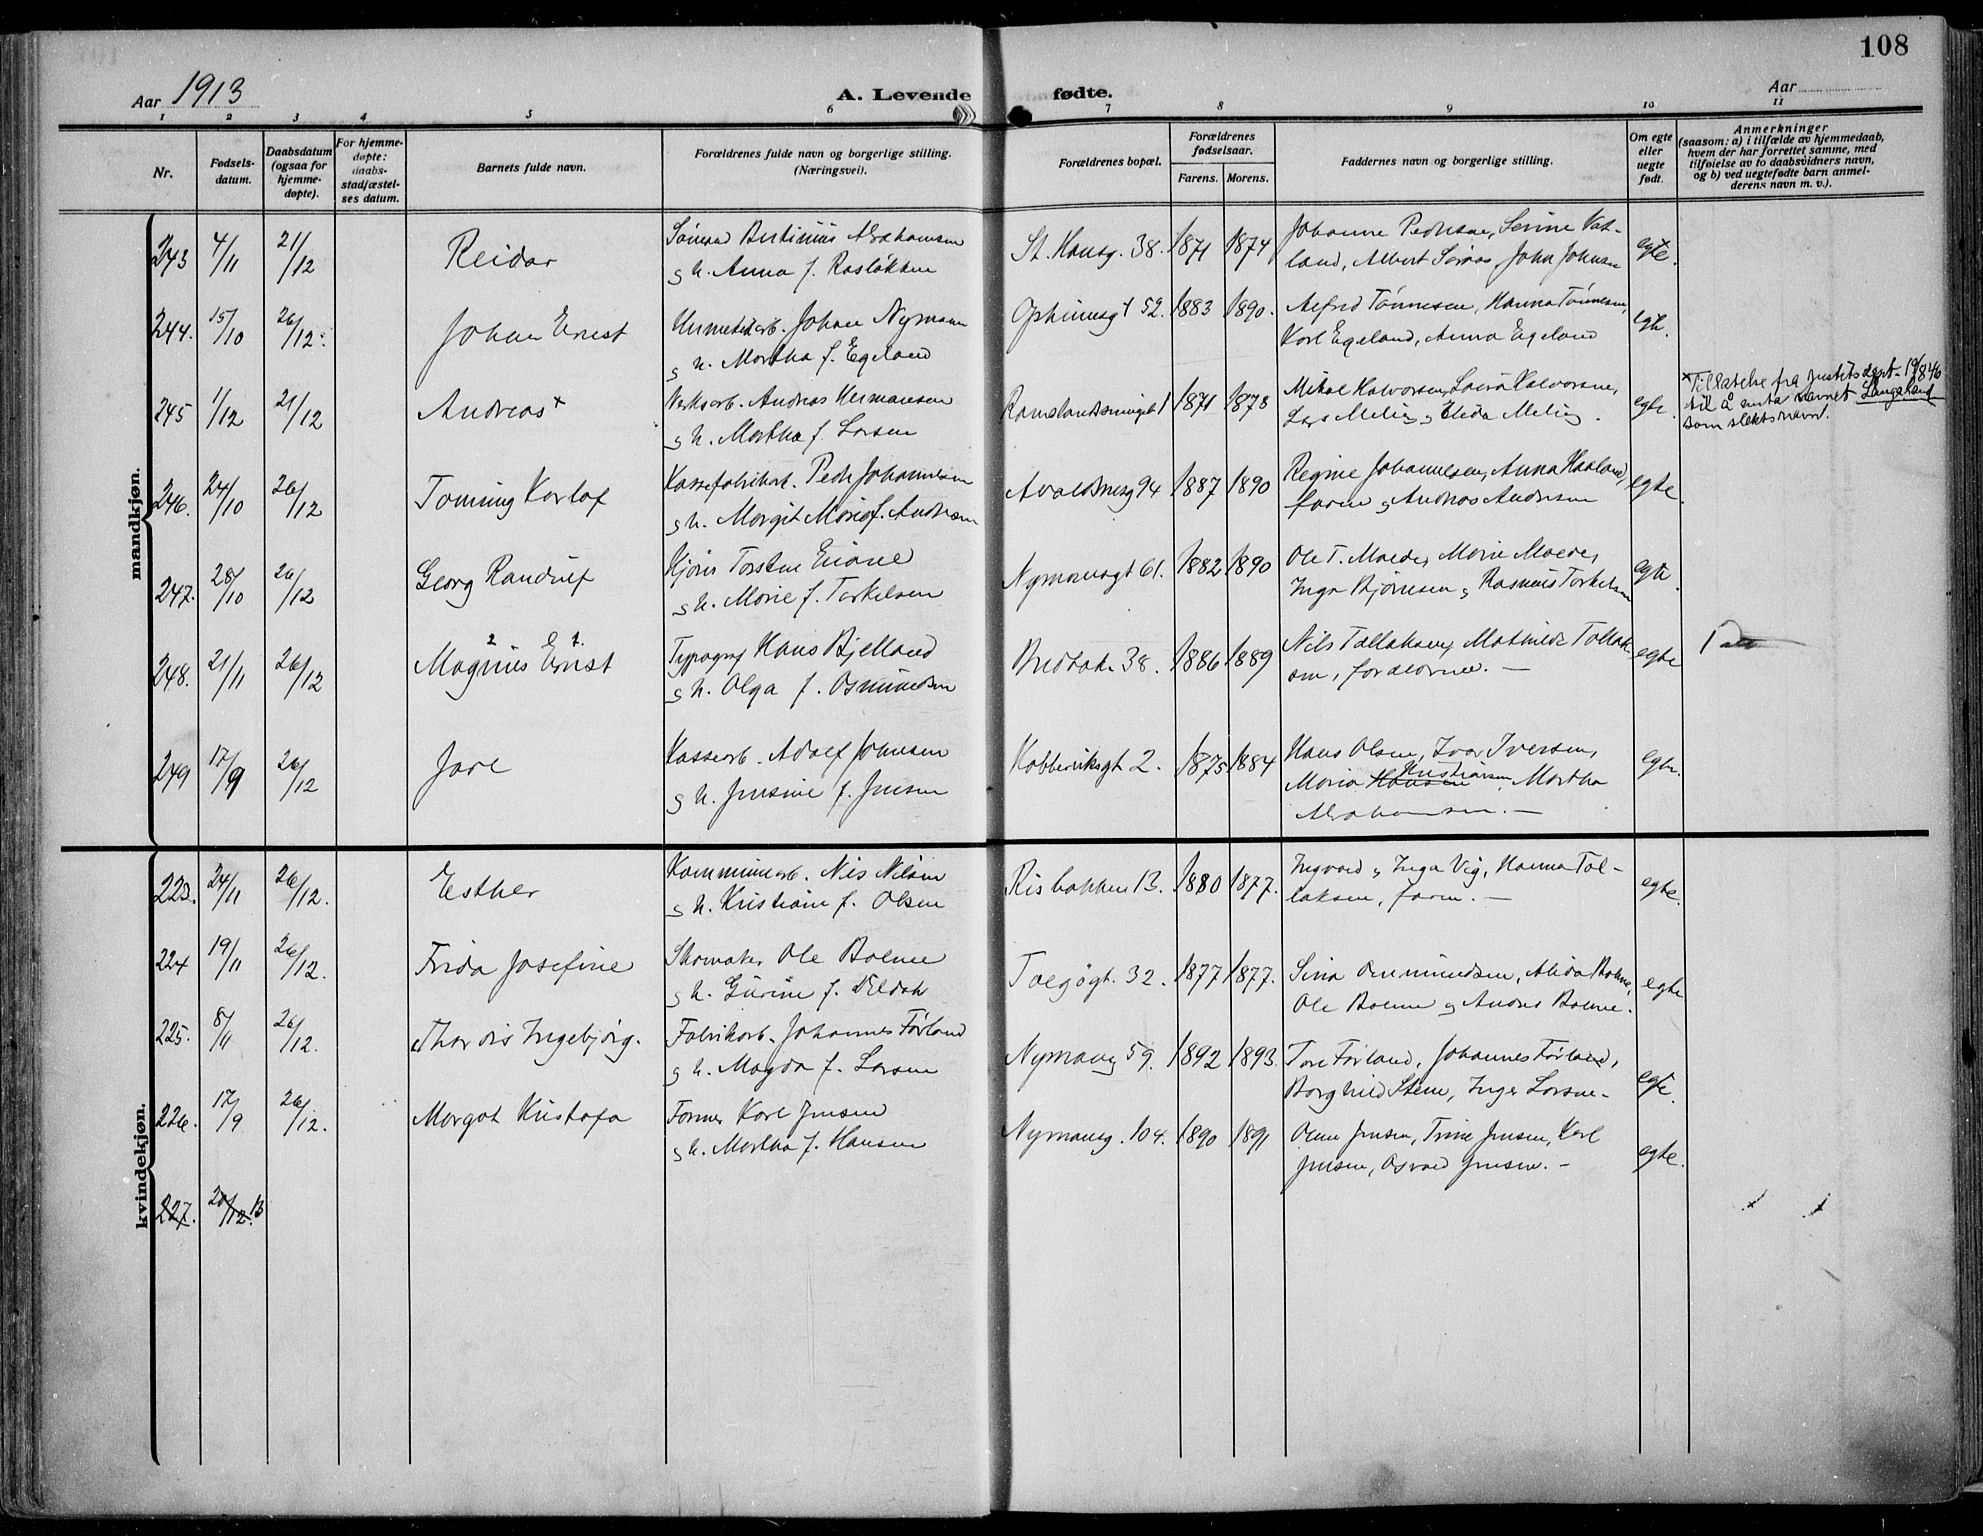 108
Aar 1913
A. Levende fødte.
Aar
1 2 3 4 5 6 7 8 9 10 11
Nr.
Fødsels-
datum.
Daabsdatum
(ogsaa for
hjemme-
døpte).
For hjemme-
døpte:
daabs-
stadfæstel-
ses datum.
Barnets fulde navn.
Forældrenes fulde navn og borgerlige stilling.
(Næringsvei).
Forældrenes bopæl.
Forældrenes
fødselsaar.
Farens. Morens.
Faddernes navn og borgerlige stilling.
Om egte
eller
uegte
født.
Anmerkninger
(saasom: a) i tilfælde av hjemmedaab,
hvem der har forrettet samme, med
tilføielse av to daabsvidners navn,
og b) ved uegtefødte barn anmel-
derens navn m. v.).
mandkjøn.
243 4/11 21/12 Reidar
Abrahamsen
h. Anna f. Rasløkken
St. Hansg. 38. 1871 1874
Johanne Pedersen, Serine Vat-
land, Albert John Johnsen
egte.
244. 15/10 26/12. Johan Ernst
Johan Nyman
h. Martha f. Egeland
52. 1883 1890.
Alfred Tønnesen, Hanna Tønnesen,
Karl Egeland, Anna Egeland
egte.
245 1/12 21/12 Andreas x
Verksarb. Andreas Hermansen
h. Martha f. Larsen
1 1871 1878
Mikal Halvorsen, Laura Halvorsen,
Lars Meling Elida Meling.
egte.
x Tillatelse fra justitsdept. 19/8 46
til å anta navnet Langeland
som slektsnavn.
246. 24/10 26/12 Tomming Karlof
Kassefabrikarb. Peder Johannesen
h. Margit Marie f. Andersen
Avaldsnesg 94 1887 1890
Regine Johannesen, Anna Haaland,
faren Andreas Andersen
egte.
247. 28/10 26/12 Georg Randulf
Torsten Eriane
h. Marie f. Torkelsen
Nymansgt 61. 1882 1890
Ole T. Moede, Marie Moede,
Inga Bjørnsen Rasmus Torkelsen
egte.
248. 21/11 26/12 Magnus 2 Ernst 1.
Typograf Hans Bjelland
h. Olga f. Osmundsen
Bredbak. 38. 1886 1889
Nils Tallaksen, Mathilde Tallak-
sen, forældrene. —
egte
249 17/9 26/12 Jarl
Kassearb. Adolf Johnsen
h. Jensine f. Jensen
Kobberviksgt 2. 1875 1884
Hans Olsen, Ivar Iversen,
Maria Hansen Kristiansen, Martha
Abrahamsen. —
egte.
kvindekjøn.
223. 24/11 26/12. Esther
Kommunearb. Nils Nilsen
h. Kristiane f. Olsen
Risbakken 13. 1880 1877.
Ingvald Inga Vig, Hanna Tol-
laksen, faren. —
egte.
224 19/11 26/12. Frida Josefine
Skomaker Ole Bolme
h. Gurine f.
Torgøgt. 32. 1877 1877.
Sina Ommundsen, Alida Bolme,
Ole Bolme Anders Bolme.
egte
225. 8/11 26/12. Thordis Ingebjørg.
Fabrikarb. Johannes Førland
h. Magda f. Larsen
Nymansg 59. 1892 1893.
Tore Førland, Johannes Førland,
Borghild Stene, Inger Larsen.
egte.
226. 17/9 26/12. Margot Kristofa
Former Karl Jensen
h. Martha f. Hansen
Nymansg. 104. 1890 1891
Olene Jensen, Trine Jensen, Karl
Jensen, Osvald Jensen. —
egte.
227. 20/12. 13